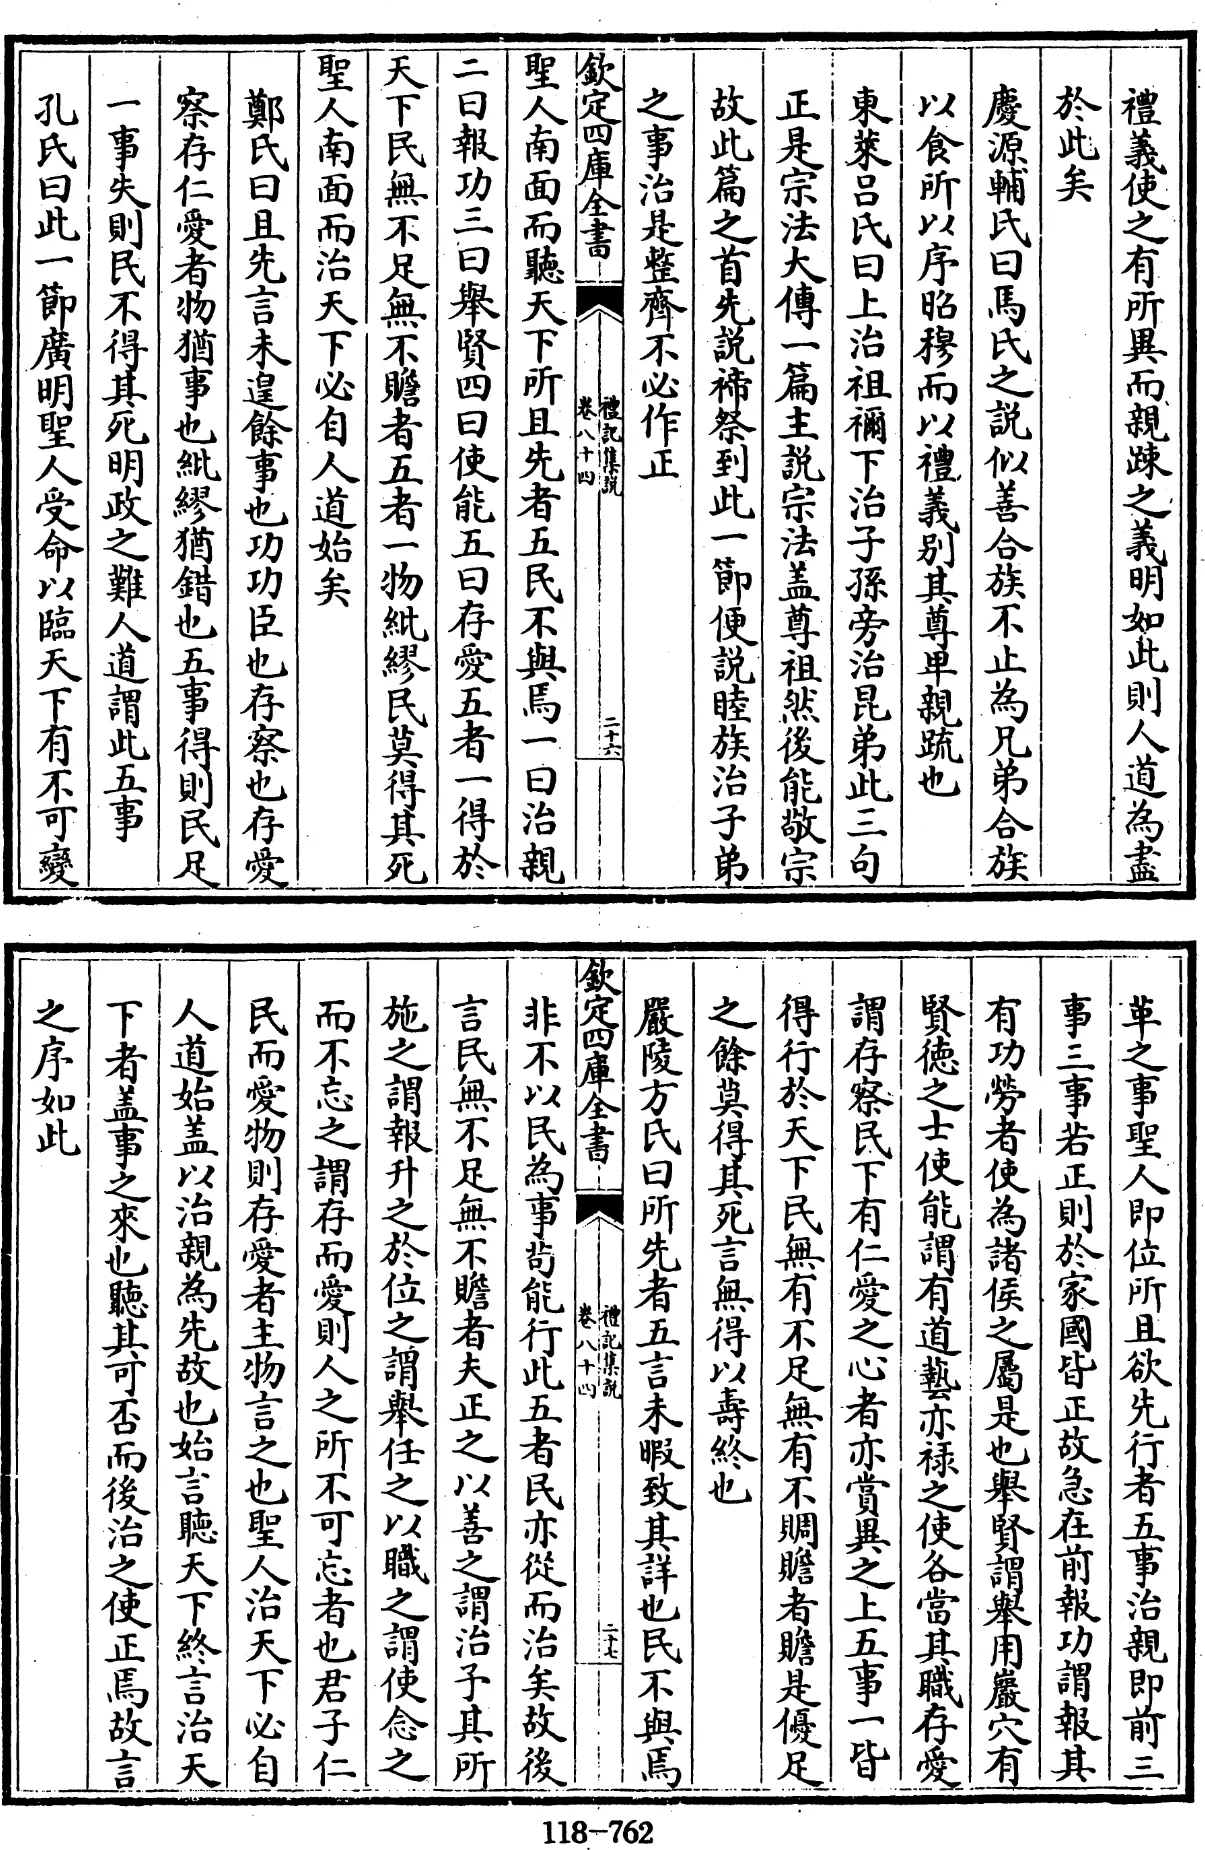 禮義使之有所異而親踈之義明如此則人道為盡
於此矣
慶源輔氏曰馬氏之説似善合族不止為兄弟合族
以食所以序昭穆而以禮義别其尊卑親疏也
東萊吕氏曰上治祖禰下治子孫旁治昆弟此三句
正是宗法大傳一篇主説宗法盖尊祖然後能敬宗
故此篇之首先説禘祭到此一節便説睦族治子弟
之事治是整齊不必作正
欽定四庫全書
禮記集説
卷八十四
二十六
聖人南面而聽天下所且先者五民不與焉一曰治親
二曰報功三曰舉賢四曰使能五曰存愛五者一得於
天下民無不足無不贍者五者一物紕繆民莫得其死
聖人南面而治天下必自人道始矣
鄭氏曰且先言未遑餘事也功功臣也存察也存愛
察存仁愛者物猶事也紕繆猶錯也五事得則民足
一事失則民不得其死明政之難人道謂此五事
孔氏曰此一節廣明聖人受命以臨天下有不可變
革之事聖人即位所且欲先行者五事治親即前三
事三事若正則於家國皆正故急在前報功謂報其
有功勞者使為諸侯之屬是也舉賢謂舉用巖穴有
賢徳之士使能謂有道藝亦禄之使各當其職存愛
謂存察民下有仁愛之心者亦賞異之上五事一皆
得行於天下民無有不足無有不賙贍者贍是優足
之餘莫得其死言無得以壽終也
嚴陵方氏曰所先者五言未暇致其詳也民不與焉
欽定四庫全書
禮記集説
卷八十四
二十七
非不以民為事苟能行此五者民亦從而治矣故後
言民無不足無不贍者夫正之以善之謂治予其所
施之謂報升之於位之謂舉任之以職之謂使念之
而不忘之謂存而愛則人之所不可忘者也君子仁
民而愛物則存愛者主物言之也聖人治天下必自
人道始盖以治親為先故也始言聽天下終言治天
下者盖事之來也聽其可否而後治之使正焉故言
之序如此
118-762